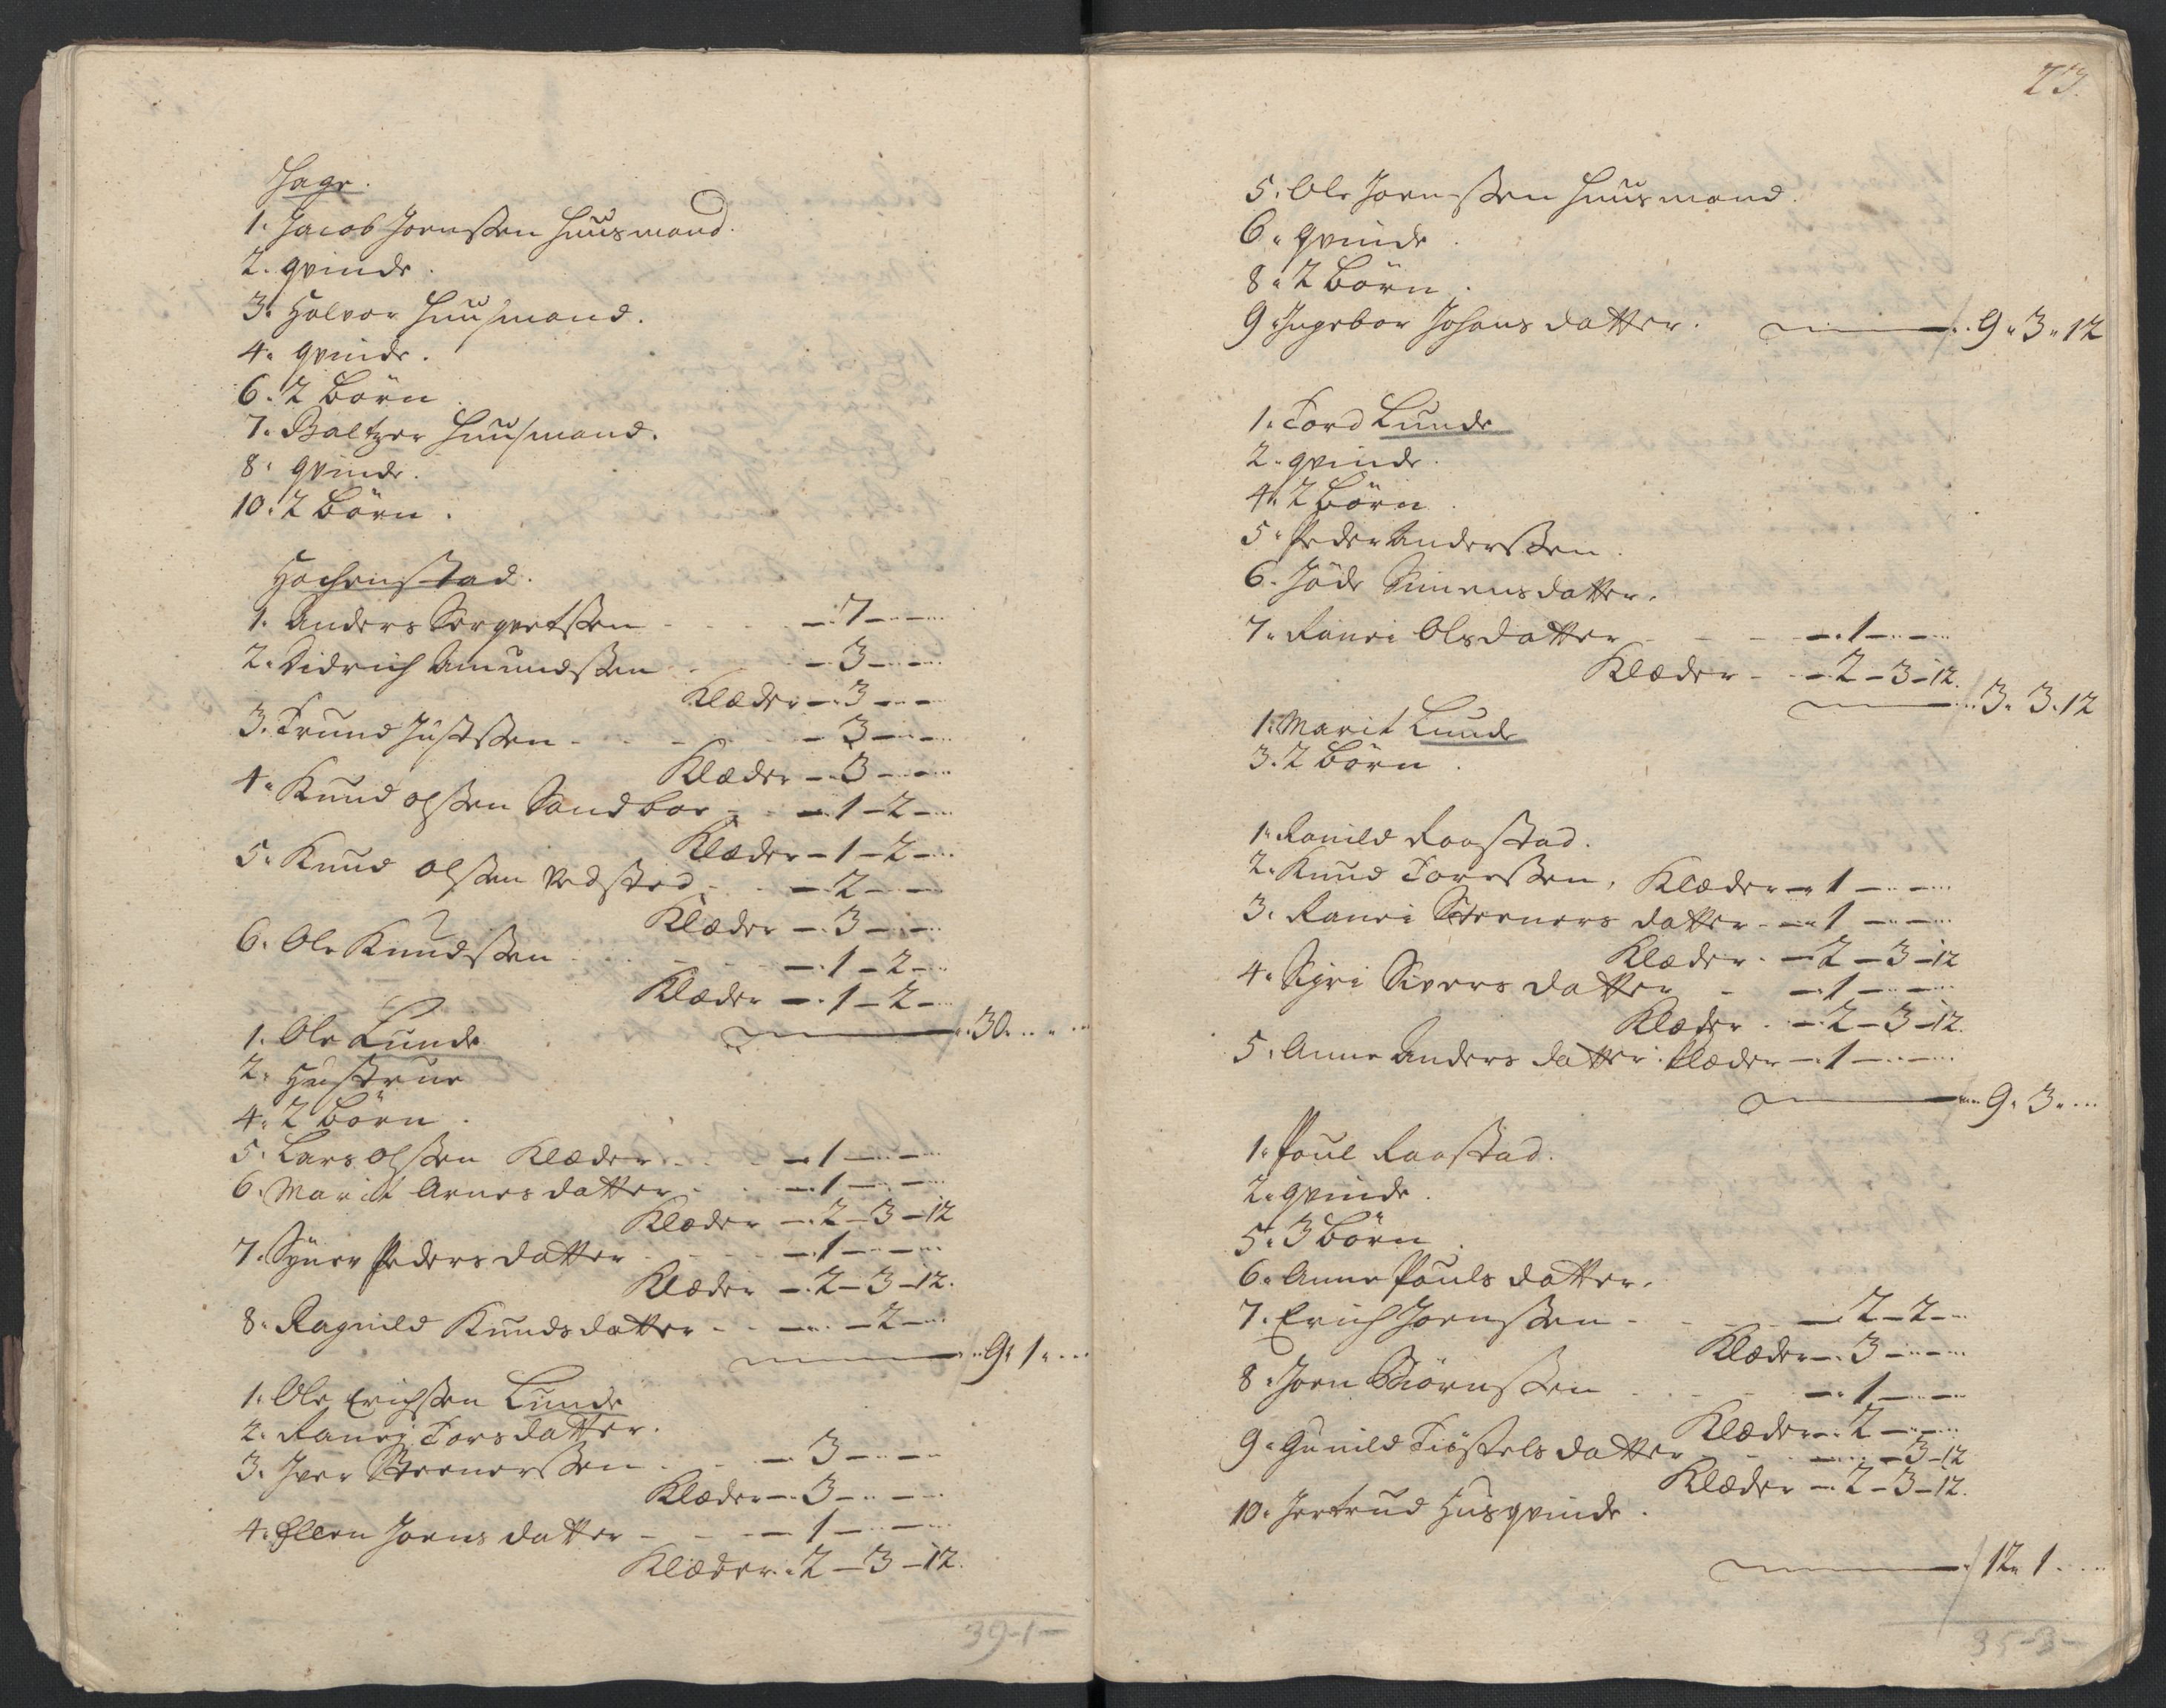 Hage.
1. Jacob Joenssen Huusmand.
2. qvinde.
3. Halvor Huusmand.
4. qvinde.
6. 2 Börn.
7. Baltzer Huusmand.
8. qvinde.
10. 2 Börn.
Hachenstad.
1. Anders - 7 -
2. Didrich Amundssen - 3 -
Klæder - 3 -
3. Trund - 3 -
Klæder - 3 -
4. Knud olssen Sandboe - 1 - 2 -
Klæder - 1 - 2 -
5. Knud olssen - 2 -
Klæder - 3 -
6. Ole Knudssen - 1 - 2 -
Klæder - 1 - 2 -
30
1. Ole Lunde
2. Hustrue
4. 2 Börn.
5. Lars olssen Klæder - 1 -
6. Marit Arnesdatter - 1 -
Klæder - 2 - 3 - 12
7. Pedersdatter - 1 -
Klæder - 2 - 3 - 12.
8. Ragnild Knudsdatter - 2 -
9. 1.
1. Ole Erichssen Lunde
2. Ranei Torsdatter.
3. Iver Steenerssen - 3 -
Klæder - 3 -
4. Ellen Joens datter - 1 -
Klæder - 2 - 3 - 12.
39 - 1 -
23.
5. Ole Joenssen Huusmand.
6. qvinde.
8. 2 Börn.
9. Ingebor Johans datter. 9. 3. 12
1. Tord Lunde
2. qvinde.
4. 2 Börn.
5. Peder Anderssen.
6. Simensdatter.
7. Ranei Olsdatter - 1 -
Klæder - 2 - 3 - 12.
3. 3. 12
1. Marit Lunde
3. 2 Börn.
1. Ranild Raastad.
2. Knud Toressen, Klæder - 1 -
3. Ranei Steeners datter - 1 -
Klæder - 2 - 3 - 12
4. Sigri Sivers datter - 1 -
Klæder - 2 - 3 - 12.
5. Anne Anders datter. Klæder - 1 -
9. 3.
1. Poul Raastad.
2. qvinde.
5. 3 Börn.
6. Anne Pouls datter.
7. Erich Joenssen - 2 - 2 -
Klæder - 3 -
8. Joen Biörnssen - 1 -
Klæder - 2 -
9. Gunild Tiöstels datter - 3 - 12
Klæder - 2 - 3 - 12.
10. Jertrud Husqvinde.
12. 1.
35 - 3 -